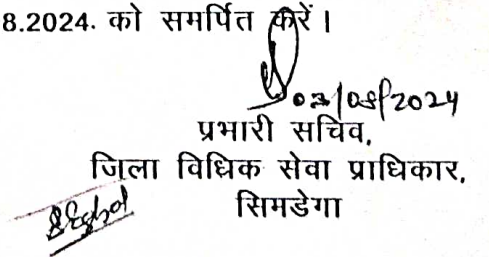 8.2024. को समर्पित करें।
02/08/2024
प्रभारी सचिव,
जिला विधिक सेवा प्राधिकार,
सिमडेगा